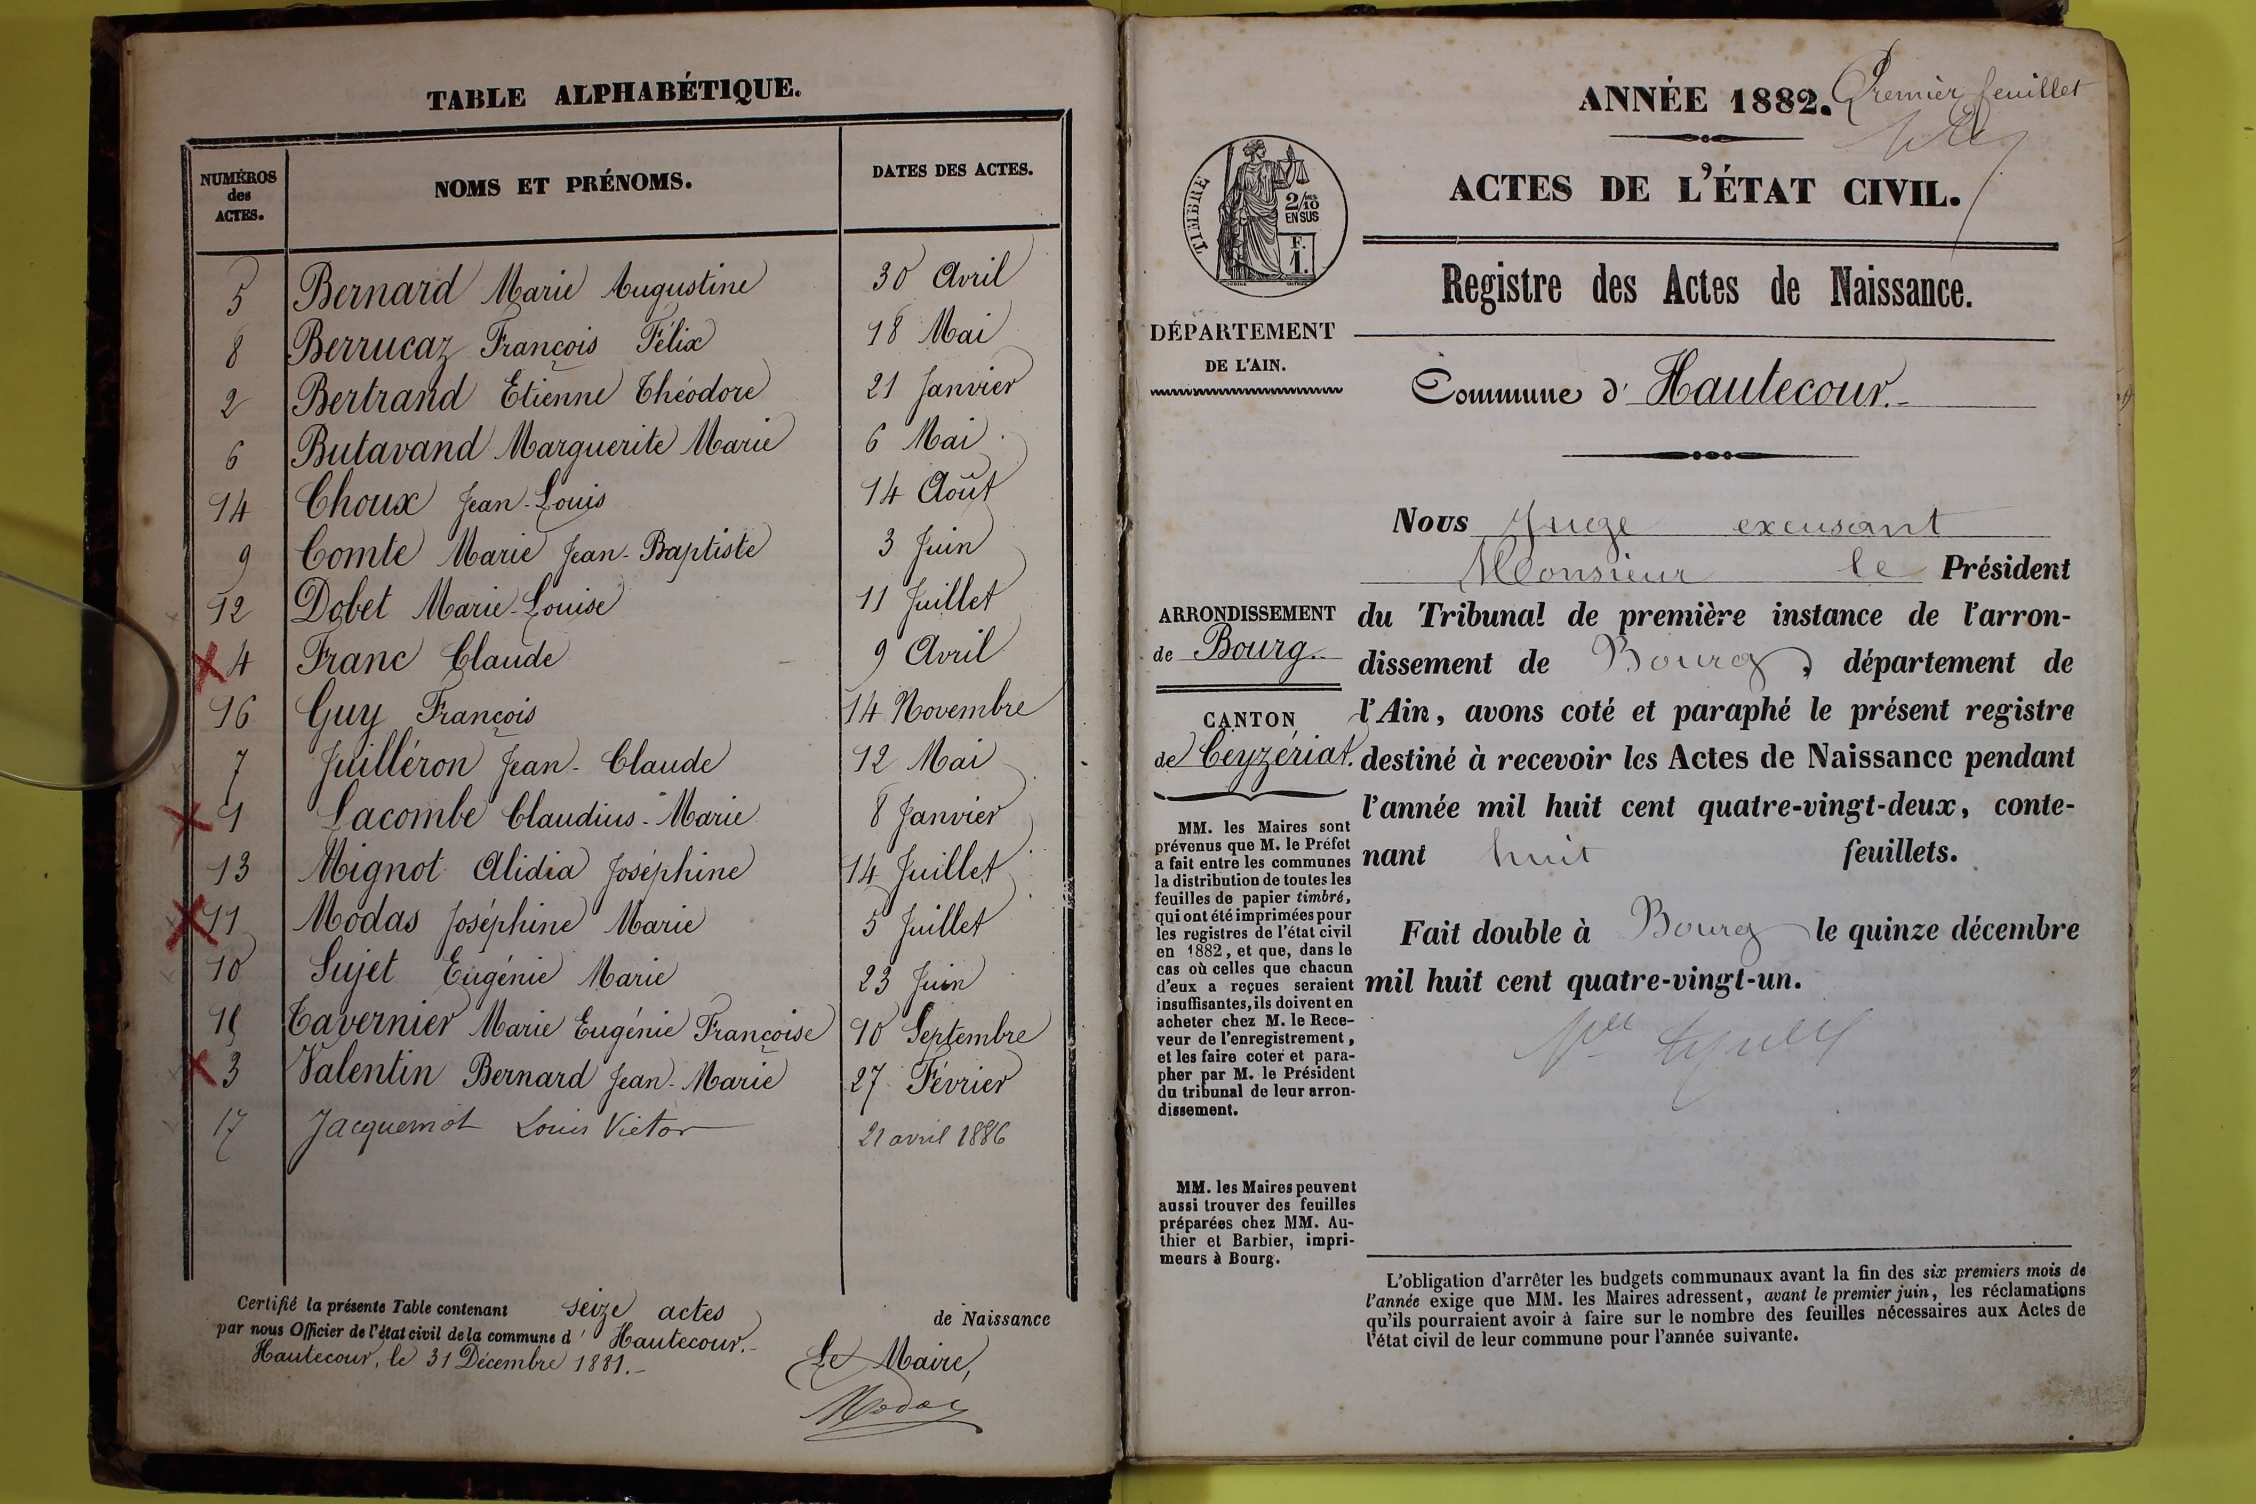 TABLE ALPHABÉTIQUE.
NUMÉROS des ACTES.
NOMS ET PRÉNOMS.
DATES DES ACTES.
5 Bernard Marie Augustine 30 Avril
8 Berrucaz François Félix 18 Mai
2 Bertrand Etienne Théodore 21 Janvier
6 Butavand Marguerite Marie 6 Mai
14 Choux Jean-Louis 14 Août
9 Comte Marie Jean-Baptiste 3 Juin
12 Dobet Marie-Louise 11 Juillet
4 Franc Claude 9 Avril
16 Guy François 14 Novembre
7 Juilléron Jean-Claude 12 Mai
1 Lacombe Claudius-Marie 8 Janvier
13 Mignot Alidia Joséphine 14 Juillet
11 Modas Joséphine Marie 5 Juillet
10 Sujet Eugénie Marie 23 Juin
15 Tavernier Marie Eugénie Françoise 10 Septembre
3 Valentin Bernard Jean-Marie 27 Février
17 Jacquemot Louis Victor 21 avril 1886
Certifié la présente Table contenant seize actes de Naissance
par nous Officier de l'état civil de la commune d' Hautecour.-
Hautecour, le 31 Décembre 1881.-
Le Maire,
Modas
ANNÉE 1882.
Premier feuillet
ACTES DE L'ÉTAT CIVIL.
TIMBRE
2/10 EN SUS
F. 1.
Registre des Actes de Naissance.
DÉPARTEMENT
DE L'AIN.
Commune d' Hautecour.-
ARRONDISSEMENT
de Bourg.-
CANTON
de Ceyzériat.
MM. les Maires sont
prévenus que M. le Préfet
a fait entre les communes
la distribution de toutes les
feuilles de papier timbré,
qui ont été imprimées pour
les registres de l'état civil
en 1882, et que, dans le
cas où celles que chacun
d'eux a reçues seraient
insuffisantes, ils doivent en
acheter chez M. le Rece-
veur de l'enregistrement,
et les faire coter et para-
pher par M. le Président
du tribunal de leur arron-
dissement.
MM. les Maires peuvent
aussi trouver des feuilles
préparées chez MM. Au-
thier et Barbier, impri-
meurs à Bourg.
Nous Juge excusant
Monsieur le Président
du Tribunal de première instance de l'arron-
dissement de Bourg, département de
l'Ain, avons coté et paraphé le présent registre
destiné à recevoir les Actes de Naissance pendant
l'année mil huit cent quatre-vingt-deux, conte-
nant huit feuillets.
Fait double à Bourg le quinze décembre
mil huit cent quatre-vingt-un.
L'obligation d'arrêter les budgets communaux avant la fin des six premiers mois de
l'année exige que MM. les Maires adressent, avant le premier juin, les réclamations
qu'ils pourraient avoir à faire sur le nombre des feuilles nécessaires aux Actes de
l'état civil de leur commune pour l'année suivante.